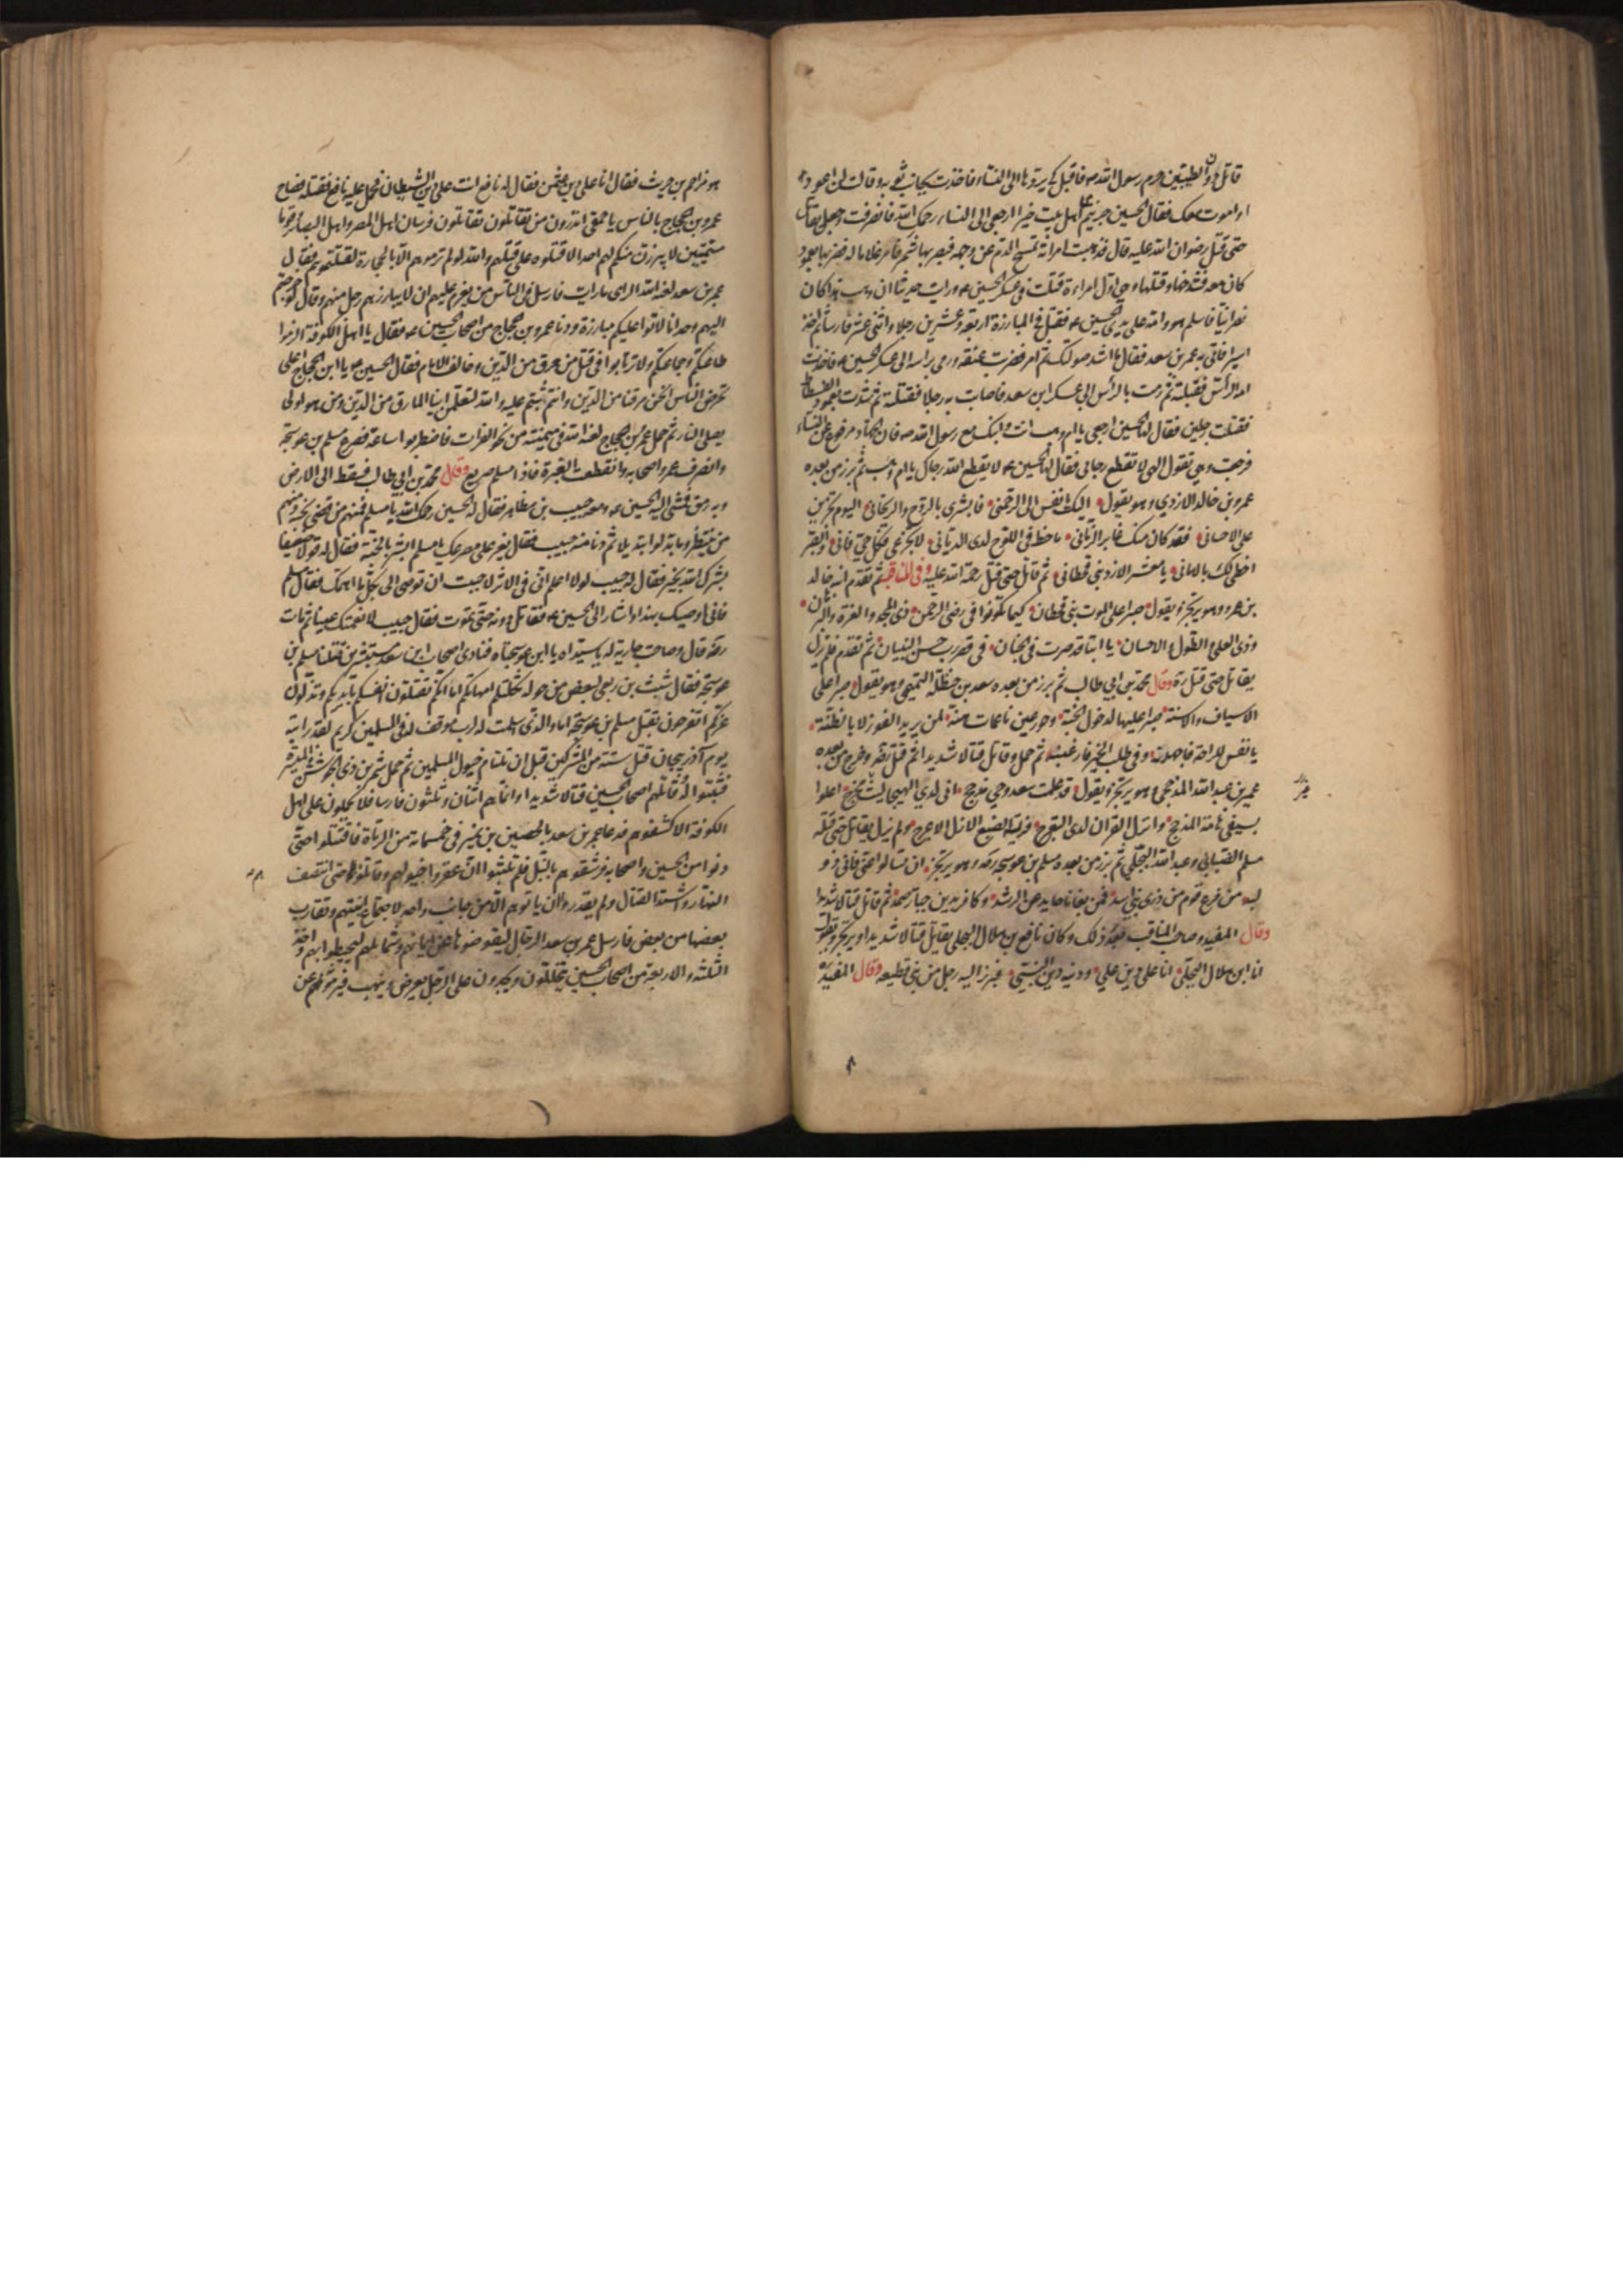 قاتل دون الطيبين حرم رسول الله ص فاقبل كي يردها الى النساء فاخذت بجانب ثوبه وقالت لن اعود
او اموت معك فقال الحسين جزيتم من اهل بيت خيرا ارجعي الى النساء رحمك الله فانصرفت وجعل يقاتل
حتى قتل رضوان الله عليه قال فذهبت امراته تمسح الدم عن وجهه فبصر بها شمر فامر غلاما له فضربها بعمود
كان معه فشدخها وقتلها وهي اول امراة قتلت في عسكر الحسين ع ورايت حديثا ان وهب هذا كان
نصرانيا فاسلم هو وامه على يدي الحسين ع فقتل في المبارزة اربعة وعشرين رجلا واثنى عشر فارسا ثم اخذ
اسيرا فاتي به عمر بن سعد فقال ما اشد صولتك ثم امر فضربت عنقه ورمى براسه الى عسكر الحسين ع فاخذت
امه الرأس فقبلته ثم رمت بالرأس الى عسكر ابن سعد فاصابت به رجلا فقتلته ثم شدت بعمود الفسطاط
فقتلت رجلين فقال لها الحسين ارجعي يا ام وهب انت وابنك مع رسول الله ص فان الجهاد مرفوع عن النساء
فرجعت وهي تقول الهي لا تقطع رجائي فقال لها الحسين ع لا يقطع الله رجاك يا ام وهب ثم برز من بعده
عمرو بن خالد الازدي وهو يقول اليك يا نفس الى الرحمن فابشري بالروح والريحان اليوم تجزين
على الاحسان قد كان منك غابر الزمان ما خط في اللوح لدى الديان لا تجزعي فكل حي فان والصبر
احظى لك بالامان يا معشر الازد بني قحطان ثم قاتل حتى قتل رحمة الله عليه وفي المناقب ثم تقدم ابنه خالد
بن عمرو وهو يرتجز ويقول صبرا على الموت بني قحطان كيما تكونوا في رضى الرحمن ذي المجد والعزة والبرهان
وذي العلى والطول والاحسان يا ابتا قد صرت في الجنان في قصر رب حسن البنيان ثم تقدم فلم يزل
يقاتل حتى قتل ره وقال محمد بن ابي طالب ثم برز من بعده سعد بن حنظلة التميمي وهو يقول صبرا على
الاسياف والاسنة صبرا عليها لدخول الجنة وحور عين ناعمات هنه لمن يريد الفوز لا بالظنة
يا نفس للراحة فاجهدنه وفي طلاب الخير فارغبنه ثم حمل وقاتل قتالا شديدا ثم قتل ره وخرج من بعده
عمير بن عبد الله المذحجي وهو يرتجز ويقول قد علمت سعد وحي مذحج اني لدى الهيجا ليث محرج اعلوا
بسيفي هامة المدجج واترك القرن لدى التعرج فريسة الضبع الازل الاعرج ولم يزل يقاتل حتى قتله
مسلم الضبابي وعبد الله البجلي ثم برز من بعده مسلم بن عوسجة ره وهو يرتجز ان تسالوا عني فاني ذو
لبد من فرع قوم من ذرى بني اسد فمن بغانا حايد عن الرشد وكافر بدين جبار صمد ثم قاتل قتالا شديدا
وقال المفيد وصاحب المناقب بعد ذلك وكان نافع بن هلال البجلي يقاتل قتالا شديدا ويرتجز ويقول
انا ابن هلال البجلي انا على دين علي ودينه دين النبي فبرز اليه رجل من بني قطيعة وقال المفيد ره
هو مزاحم بن حريث فقال انا على دين عثمن فقال له نافع انت على دين الشيطان فحمل عليه نافع فقتله فصاح
عمرو بن حجاج بالناس يا حمقى اتدرون من تقاتلون تقاتلون فرسان اهل المصر واهل البصائر قوما
مستميتين لا يبرزن منكم لهم احد الا قتلوه على قلتهم والله لو لم ترموهم الا بالحجارة لقتلتموهم فقال
عمر بن سعد لعنه الله الراي ما رايت فارسل في الناس من يعزم عليهم ان لا يبارزهم رجل منهم وقال لو خرجتم
اليهم وحدانا لاتوا عليكم مبارزة ودنا عمرو بن حجاج من اصحاب الحسين ع فقال يا اهل الكوفة الزموا
طاعتكم وجماعتكم ولا ترتابوا في قتل من مرق من الدين وخالف الامام فقال الحسين ع يا ابن الحجاج اعلى
تحرض الناس انحن مرقنا من الدين وانتم ثبتم عليه والله لتعلمن اينا المارق من الدين ومن هو اولى
بصلى النار ثم حمل عمرو بن حجاج لعنه الله في ميمنته من نحو الفرات فاضطربوا ساعة فصرع مسلم بن عوسجة
وانصرف عمرو واصحابه وانقطعت الغبرة فاذا مسلم صريع وقال محمد بن ابي طالب فسقط الى الارض
وبه رمق فمشى اليه الحسين ع ومعه حبيب بن مظاهر فقال له الحسين رحمك الله يا مسلم فمنهم من قضى نحبه ومنهم
من ينتظر وما بدلوا تبديلا ثم دنا منه حبيب فقال يعز على مصرعك يا مسلم ابشر بالجنة فقال له قولا ضعيفا
بشرك الله بخير فقال له حبيب لولا اعلم اني في الاثر لاحببت ان توصي الي بكل ما اهمك فقال مسلم
فاني اوصيك بهذا واشار الى الحسين ع فقاتل دونه حتى تموت فقال حبيب لانعمتك عينا ثم مات
ره قال وصاحت جارية له يا سيداه يا ابن عوسجتاه فنادى اصحاب ابن سعد مستبشرين قتلنا مسلم بن
عوسجة فقال شبث بن ربعي لبعض من حوله ثكلتكم امهاتكم اما انكم تقتلون انفسكم بايديكم وتذلون
عزكم اتفرحون بقتل مسلم بن عوسجة اما والذي اسلمت له لرب موقف له في المسلمين كريم لقد رايته
يوم آذربيجان قتل ستة من المشركين قبل ان تلتام خيول المسلمين ثم حمل شمر بن ذي الجوشن في الميسرة
فثبتوا له وقاتلهم اصحاب الحسين قتالا شديدا وانما هم اثنان وثلثون فارسا فلا يحملون على اهل
الكوفة الا كشفوهم فدعا عمر بن سعد بالحصين بن نمير في خمسمائة من الرماة فاقتتلوا حتى
دنوا من الحسين واصحابه فرشقوهم بالنبل فلم يلبثوا ان عقروا خيولهم وقاتلوهم حتى انتصف
النهار واشتد القتال ولم يقدروا ان ياتوهم الا من جانب واحد لاجتماع ابنيتهم وتقارب
بعضها من بعض فارسل عمر بن سعد الرجال ليقوضوها عن ايمانهم وشمائلهم ليحيطوا بهم واخذ
الثلثة والاربعة من اصحاب الحسين يتخللون ويجدون على الرجل يعرض وينهب فيرمونه عن